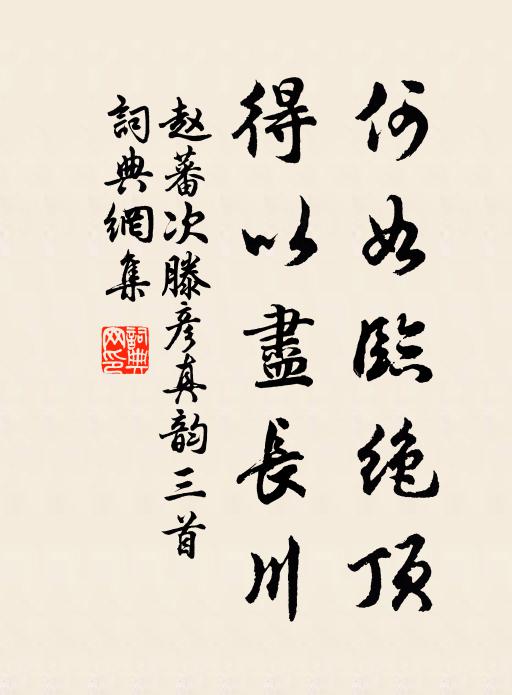 何如臨绝顶
得以盡長川
赵蕃次滕彦真韵三首
詞典網集
詞典网印